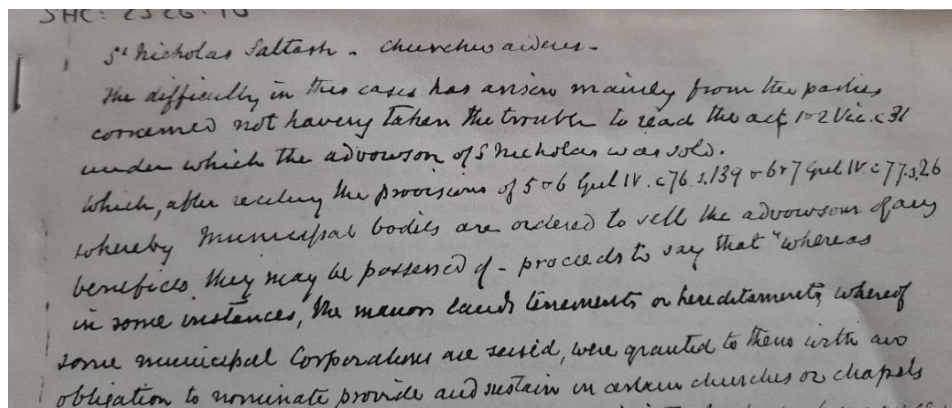 St Nicholas Saltash - Churchwardens -
The difficulty in this cases has arisen mainly from the parties
concerned not having taken the trouble to read the act 1 & 2 Vic. c 31
under which the advowson of S Nicholas was sold.
which, after reciting the provisions of 5 & 6 Gul IV. c 76 s. 139 & 6 & 7 Gul IV. c 77. s. 26
whereby Municipal bodies are ordered to sell the advowsons of any
benefices they may be possessed of - proceeds to say that "whereas
in some instances, the manors lands tenements or hereditaments, whereof
some municipal Corporations are seised, were granted to them with an
obligation to nominate provide and sustain in certain churches or chapels